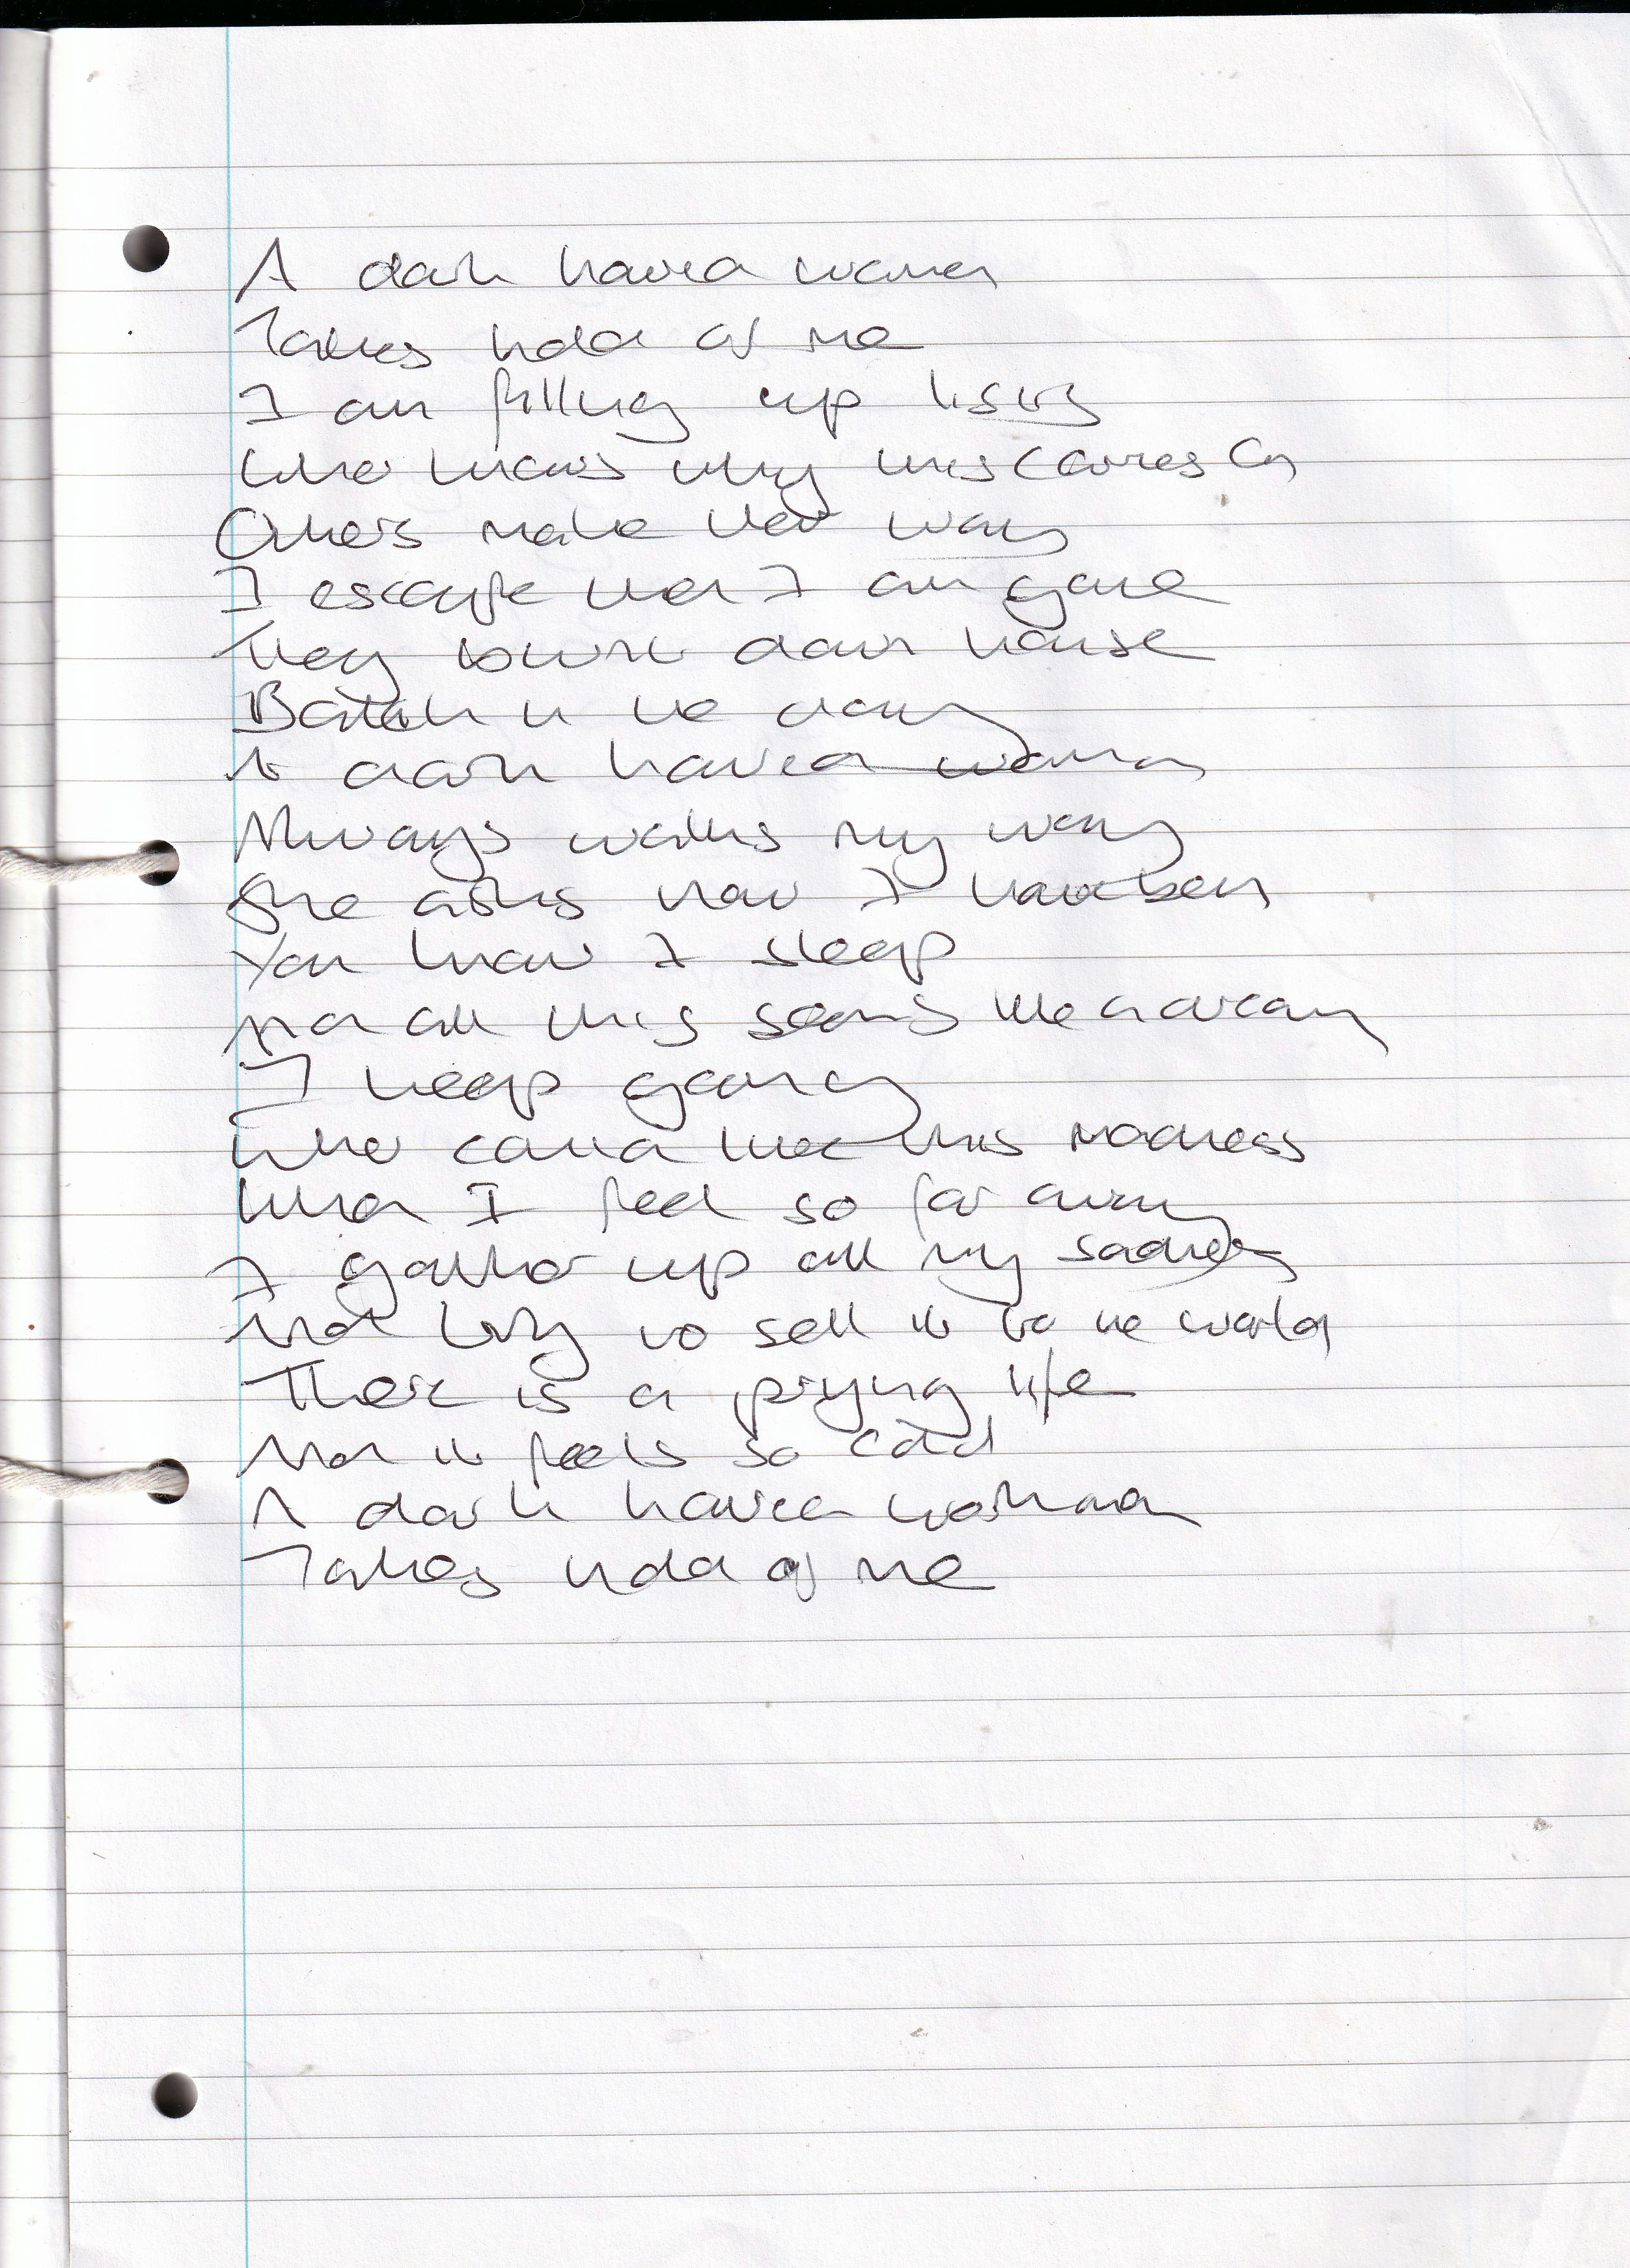 A dark haired woman
Takes hold of me
I am filling up
Who knows why this carries on
Others make their way
I escape then I am gone
They down house
in the
A dark haired woman
Always walks my way
She asks how I have been
You know I sleep
all this seems like a dream
I keep going
Who could like this madness
When I feel so far away
I gather up all my sadness
And try to sell it to the world
There is a prying life
And it feels so cold
A dark haired woman
Takes hold of me